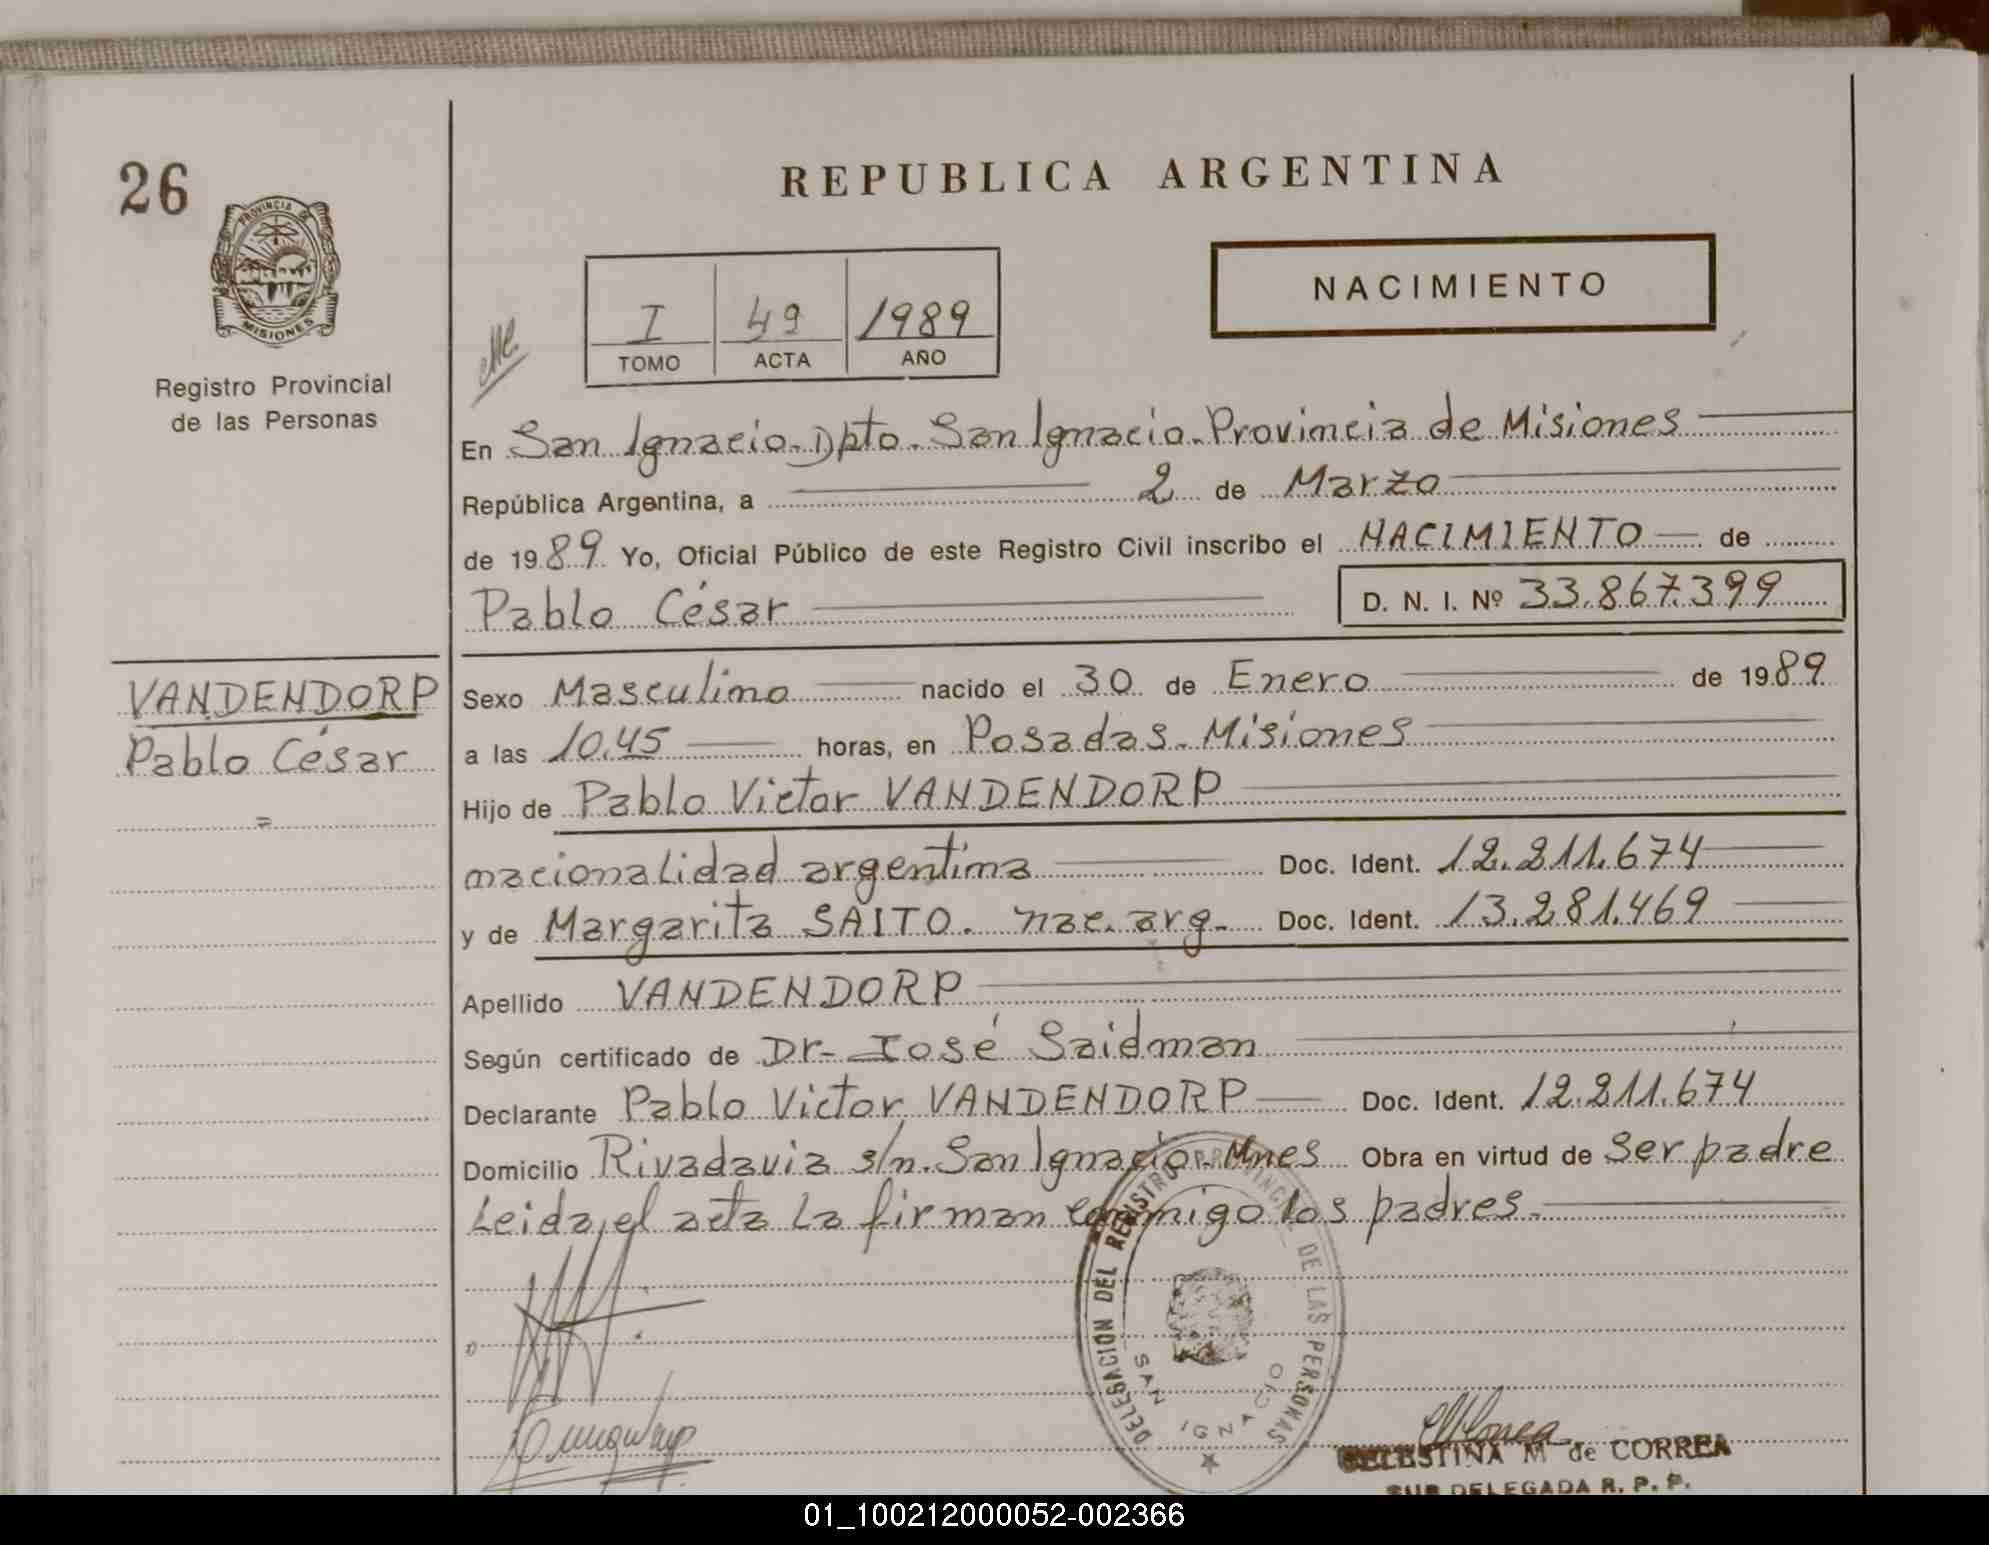 26
REPUBLICA ARGENTINA
PROVINCIA DE
MISIONES
Registro Provincial
de las Personas
I 49 1989
TOMO ACTA AÑO
NACIMIENTO
En San Ignacio. Dpto. San Ignacio. Provincia de Misiones
República Argentina, a 2 de Marzo
de 1989 Yo, Oficial Público de este Registro Civil inscribo el NACIMIENTO de
Pablo César D. N. I. Nº 33.867.399
VANDENDORP
Pablo César
=
Sexo Masculino nacido el 30 de Enero de 1989
a las 10.45 horas, en Posadas. Misiones
Hijo de Pablo Victor VANDENDORP
nacionalidad argentina Doc. Ident. 12.211.674
y de Margarita SAITO. nac. arg. Doc. Ident. 13.281.469
Apellido VANDENDORP
Según certificado de Dr. José Saidman
Declarante Pablo Victor VANDENDORP Doc. Ident. 12.211.674
Domicilio Rivadavia s/n. San Ignacio. Mnes Obra en virtud de Ser padre
Leida el acta la firman conmigo los padres.
DELEGACION DEL REGISTRO PROVINCIAL DE LAS PERSONAS
SAN IGNACIO
CELESTINA M de CORREA
SUB DELEGADA R. P. P.
01_100212000052-002366